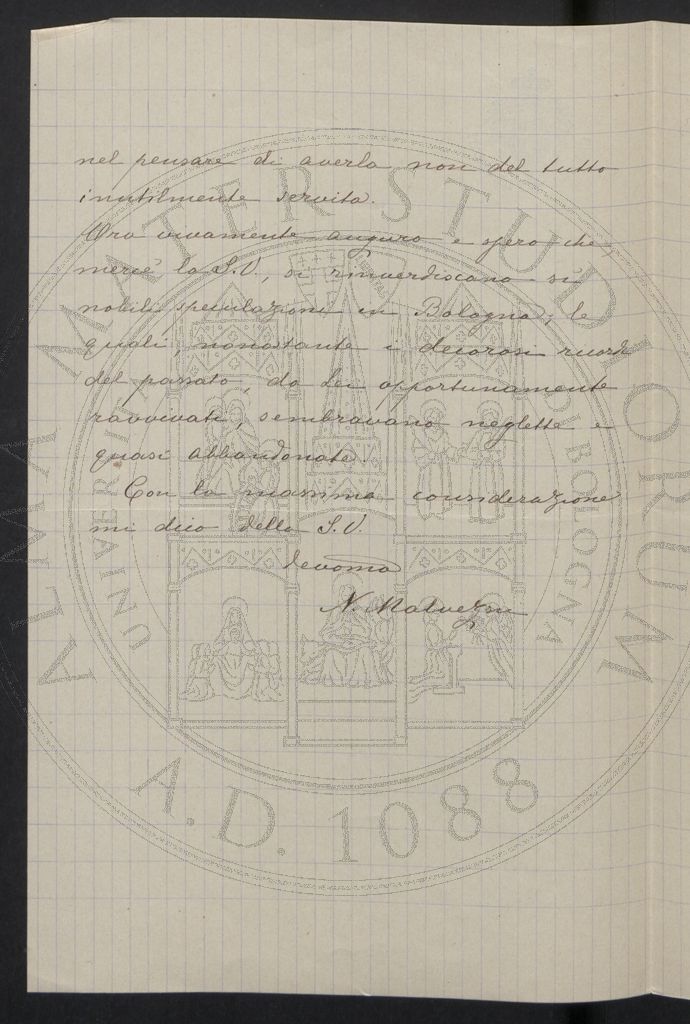 nel pensare di averla non del tutto
inutilmente servita.
Ora vivamente auguro e spero che,
mercè la S.V., si rinverdiscano sì
nobili speculazioni in Bologna; le
quali, nonostante i decorosi ricordi
del passato, da Lei opportunamente
ravvivati, sembravano neglette e
quasi abbandonate.
Con la massima considerazione
mi dico della S.V.
devoma
N. Malvezzi
ALMA MATER STUDIORUM
UNIVERSITÀ DI BOLOGNA
A.D. 1088